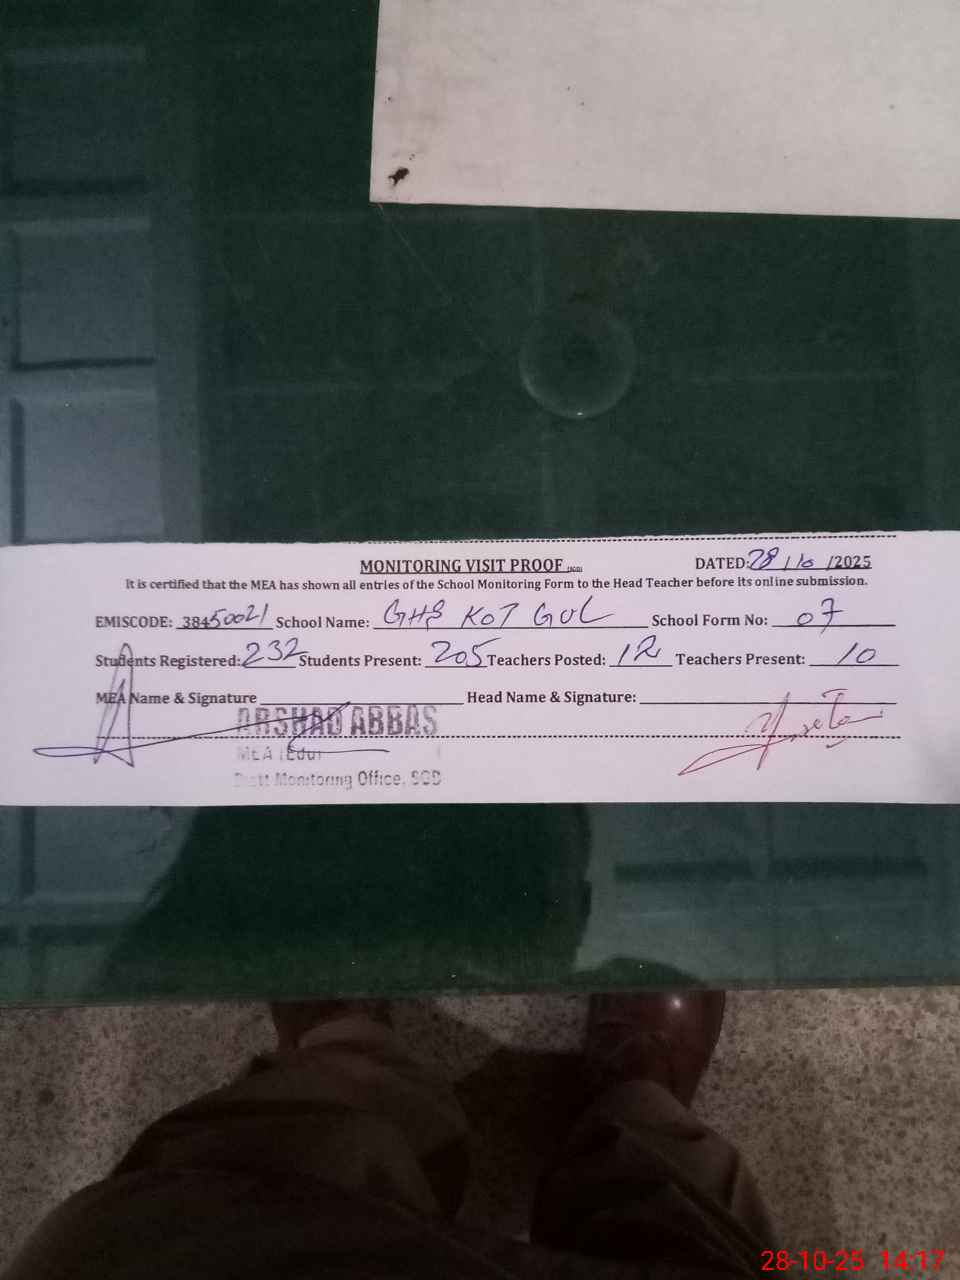 MONITORING VISIT PROOF (SGD) DATED: 28/10/2025
It is certified that the MEA has shown all entries of the School Monitoring Form to the Head Teacher before its online submission.
EMISCODE: 38450021 School Name: GHS KOT GUL School Form No: 07
Students Registered: 232 Students Present: 205 Teachers Posted: 12 Teachers Present: 10
MEA Name & Signature Head Name & Signature:
ARSHAD ABBAS
MEA (Edu)
Distt Monitoring Office, SGD
28-10-25 14:17